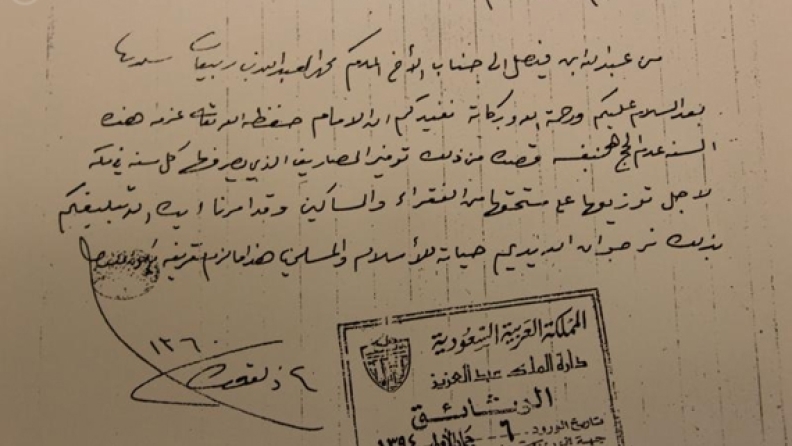 من عبد الله ابن فيصل الى جناب الأخ المكرم عبد الله بن ربيعان سلمه
بعد السلام عليكم ورحمة الله وبركاته نفيدكم ان الامام حفظه الله تعالى عزم هذه
السنة عدم الحج قصده من ذلك توفير المصاريف الذي يصرفها كل سنة في مكة
لاجل توزيعها على مستحقها من الفقراء والمساكين وقد امرنا ايده الله تبليغكم
بذلك نرجو ان الله يديم حياته للأسلام والمسلمين هذا مالزم تعريفه
١٣٦٠
٤ ذ القعدة
المملكة العربية السعودية
دارة الملك عبد العزيز
الوثائق
تاريخ الورود ٦ جماد الأول ١٣٩٤
جهة الورود